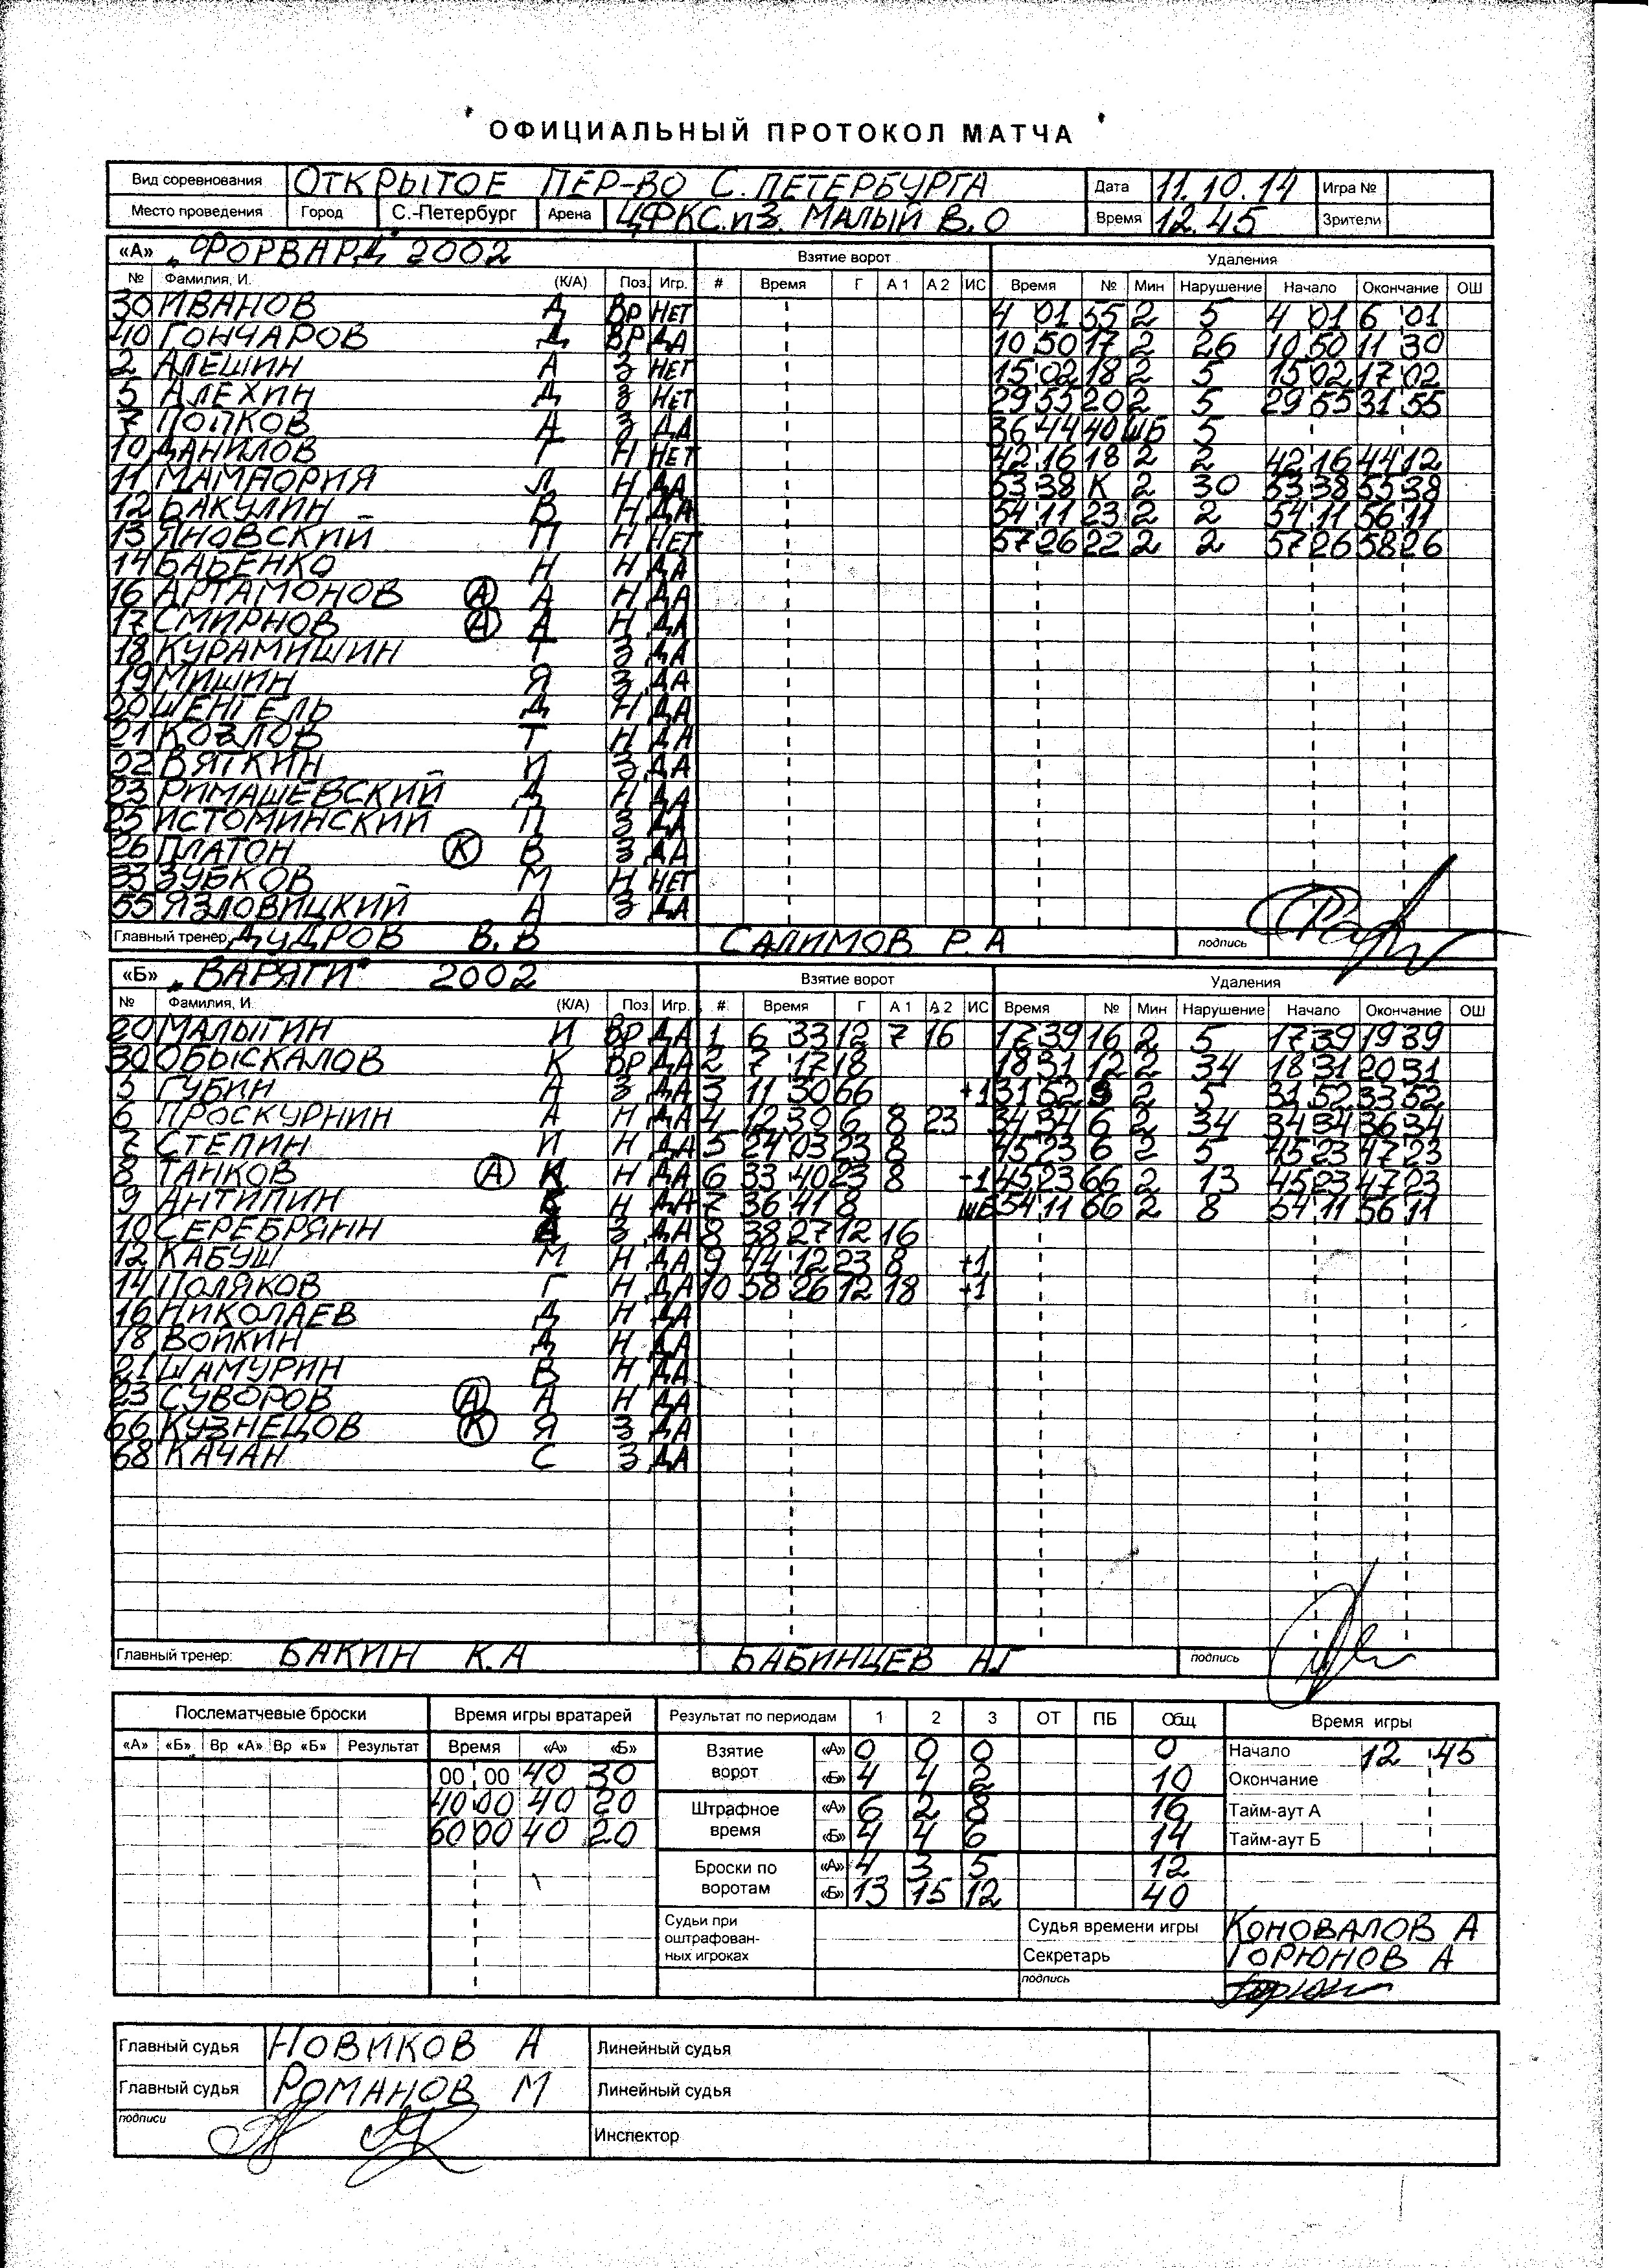 ОФИЦИАЛЬНЫЙ ПРОТОКОЛ МАТЧА
Вид соревнования ОТКРЫТОЕ ПЕР-ВО С. ПЕТЕРБУРГА Дата 11.10.14 Игра №
Место проведения Город С.-Петербург Арена ЦФКС.ИЗ. МАЛЫЙ В.О Время 12.45 Зрители
«А» „ФОРВАРД" 2002 Взятие ворот Удаления
№ Фамилия, И. (К/А) Поз. Игр. # Время Г А 1 А 2 ИС Время № Мин Нарушение Начало Окончание ОШ
30 ИВАНОВ Д ВР НЕТ 4 01 55 2 5 4 01 6 01
40 ГОНЧАРОВ Д ВР ДА 10 50 17 2 26 10 50 11 30
2 АЛЕШИН А З НЕТ 15 02 18 2 5 15 02 17 02
5 АЛЕХИН Д З НЕТ 29 55 20 2 5 29 55 31 55
7 ПОПКОВ А З ДА 36 44 40 ШБ 5
10 ДАНИЛОВ Г Н НЕТ 42 16 18 2 2 42 16 44 12
11 МАМПОРИЯ Л Н ДА 53 38 К 2 30 53 38 55 38
12 БАКУЛИН В Н ДА 54 11 23 2 2 54 11 56 11
13 ЯНОВСКИЙ П Н НЕТ 57 26 22 2 2 57 26 58 26
14 БАБЕНКО Н Н ДА
16 АРТАМОНОВ А А Н ДА
17 СМИРНОВ А А Н ДА
18 КУРАМШИН Т З ДА
19 МИШИН Я З ДА
20 ШЕНГЕЛЬ Д Н ДА
21 КОЗЛОВ Т Н ДА
22 ВЯТКИН И З ДА
23 РИМАШЕВСКИЙ Д Н ДА
25 ИСТОМИНСКИЙ П З ДА
26 ПЛАТОН К В З ДА
33 ЗУБКОВ М Н НЕТ
55 ЯЗЛОВИЦКИЙ А З ДА
Главный тренер: ДУДРОВ В.В САЛИМОВ Р.А подпись
«Б» „ВАРЯГИ" 2002 Взятие ворот Удаления
№ Фамилия, И. (К/А) Поз Игр. # Время Г А 1 А 2 ИС Время № Мин Нарушение Начало Окончание ОШ
20 МАЛЫГИН И ВР ДА 1 6 33 12 7 16 17 39 16 2 5 17 39 19 39
30 ОБЫСКАЛОВ К ВР ДА 2 7 17 18 18 31 12 2 34 18 31 20 31
5 ГУБИН А З ДА 3 11 30 66 +1 31 52 5 2 5 31 52 33 52
6 ПРОСКУРНИН А Н ДА 4 12 30 6 8 23 34 34 6 2 34 34 34 36 34
7 СТЕПИН И Н ДА 5 24 03 23 8 45 23 6 2 5 45 23 47 23
8 ТАНКОВ А К Н ДА 6 33 40 23 8 -1 45 23 66 2 13 45 23 47 23
9 АНТИПИН К Н ДА 7 36 41 8 ШБ 54 11 66 2 8 54 11 56 11
10 СЕРЕБРЯНН З ДА 8 38 27 12 16
12 КАБУШ М Н ДА 9 44 12 23 8 +1
14 ПОЛЯКОВ Г Н ДА 10 58 26 12 18 +1
16 НИКОЛАЕВ Д Н ДА
18 ВОЙКИН Д Н ДА
21 ШАМУРИН В Н ДА
23 СУВОРОВ А А Н ДА
66 КУЗНЕЦОВ К Я З ДА
68 КАЧАН С З ДА
Главный тренер: БАКИН К.А БАБИНЦЕВ АГ подпись
Послематчевые броски Время игры вратарей Результат по периодам 1 2 3 ОТ ПБ Общ Время игры
«А» «Б» Вр «А» Вр «Б» Результат Время «А» «Б» Взятие ворот «А» 0 0 0 0 Начало 12 45
00 00 40 30 «Б» 4 4 2 10 Окончание
40 00 40 20 Штрафное время «А» 6 2 8 16 Тайм-аут А
60 00 40 20 «Б» 4 4 6 14 Тайм-аут Б
Броски по воротам «А» 4 3 5 12
«Б» 13 15 12 40
Судьи при оштрафован-ных игроках Судья времени игры КОНОВАЛОВ А
Секретарь ГОРЮНОВ А
подпись
Главный судья НОВИКОВ А Линейный судья
Главный судья РОМАНОВ М Линейный судья
подписи Инспектор